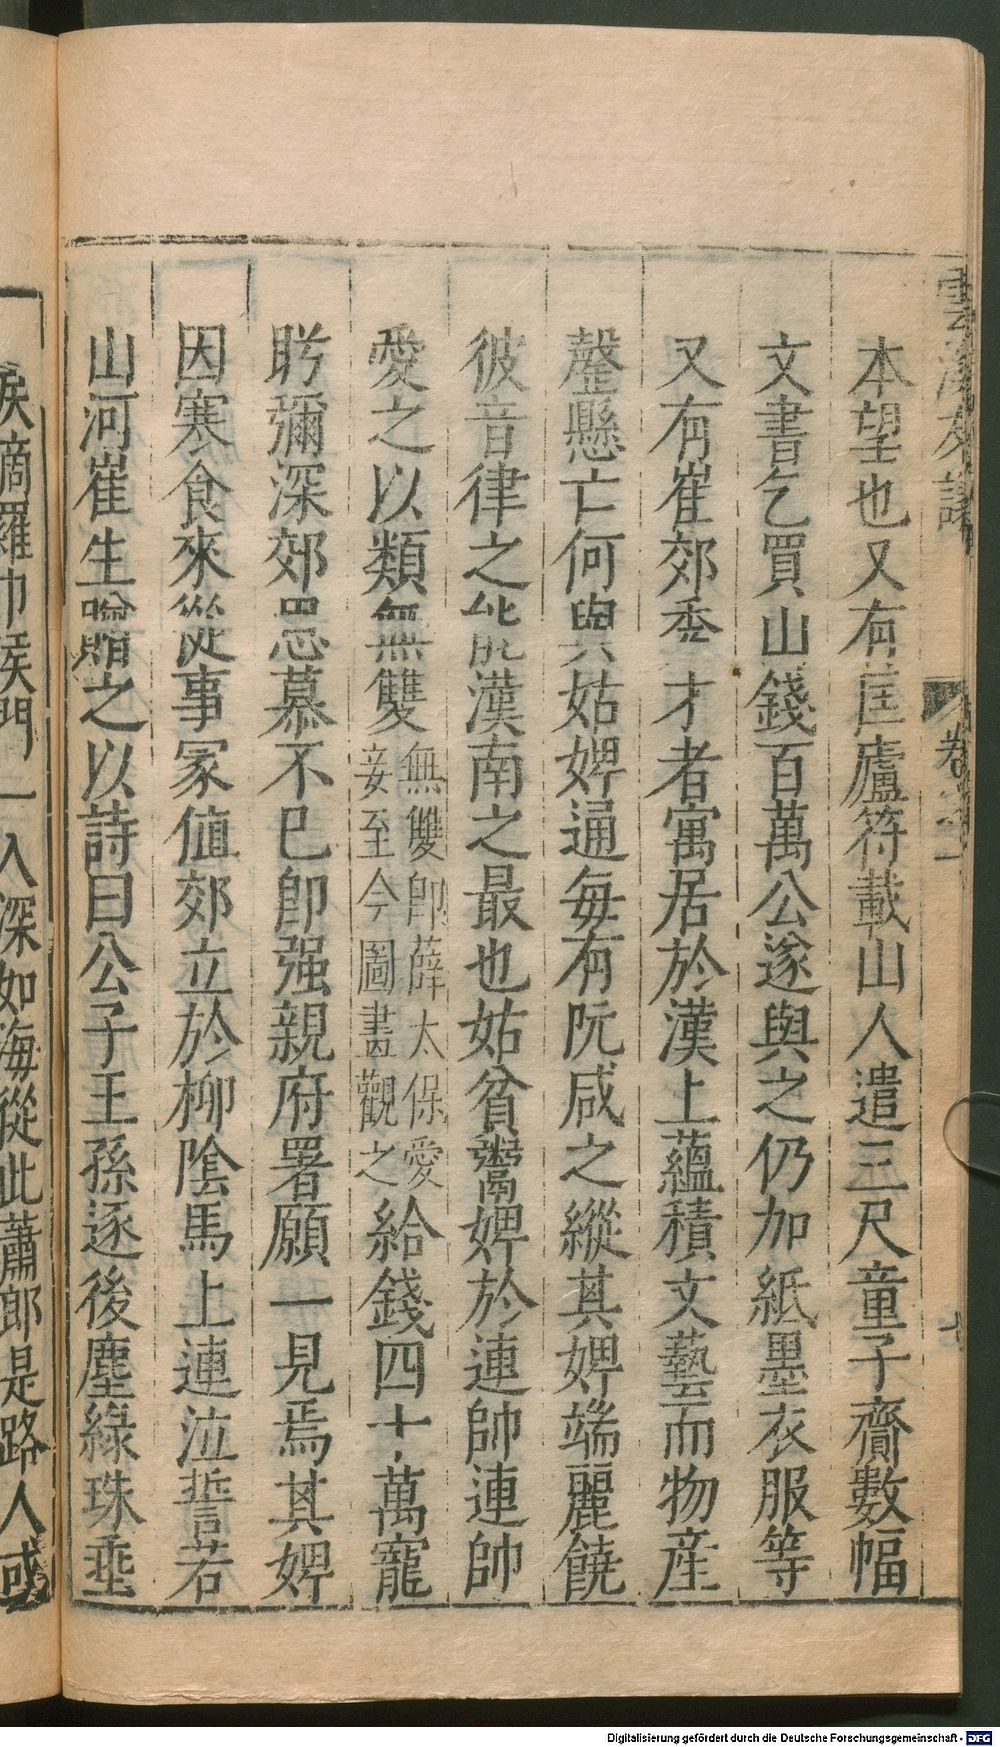 雲溪友議
卷之一
七
本望也又有匡廬符載山人遣三尺童子齎數幅
文書乞買山錢百萬公遂與之仍加紙墨衣服等
又有崔郊秀才者寓居於漢上蘊積文藝而物産
罄懸亡何與姑婢通每有阮咸之縱其婢端麗饒
彼音律之能漢南之最也姑貧鬻婢於連帥連帥
愛之以類無雙
無雙即薛太保愛
妾至今圖畫觀之
給錢四十萬寵
盻彌深郊思慕不已即强親府署願一見焉其婢
因寒食來從事冢值郊立於柳陰馬上連泣誓若
山河崔生贈之以詩曰公子王孫逐後塵綠珠垂
淚滴羅巾侯門一入深如海從此蕭郎是路人或
Digitalisierung gefördert durch die Deutsche Forschungsgemeinschaft - DFG